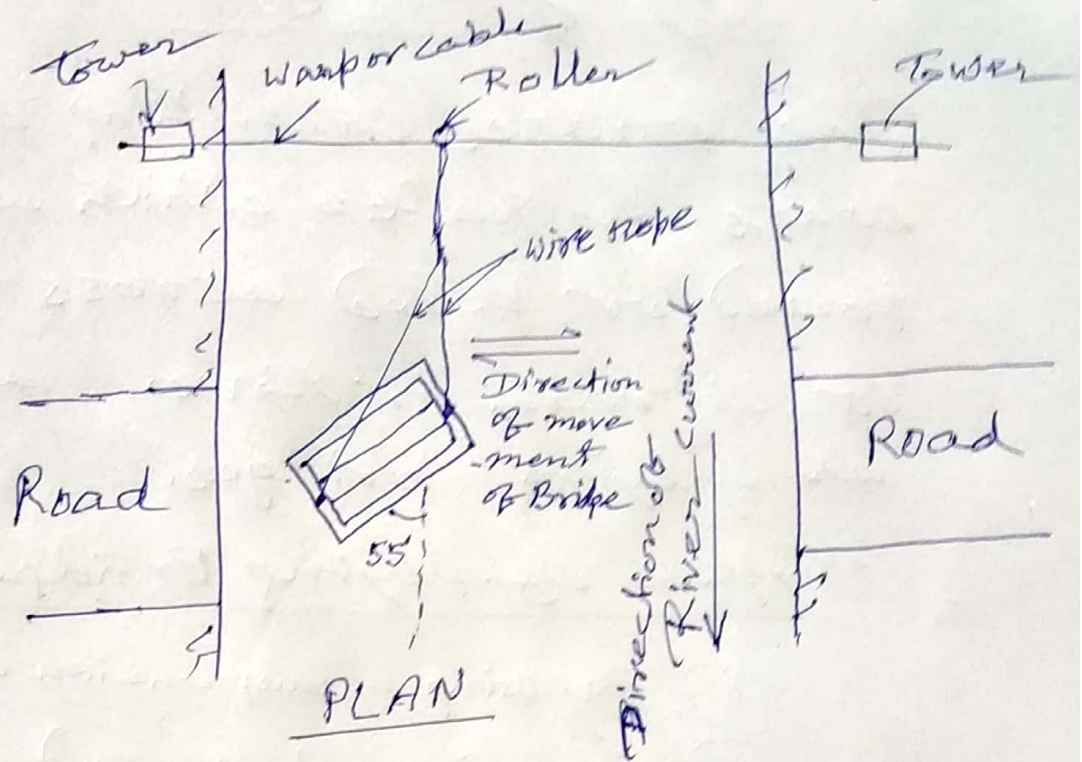 Tower
Warp or cable
Roller
Tower
Wire rope
Direction
of move
-ment
of Bridge
Direction of
River current
Road
Road
55°
PLAN